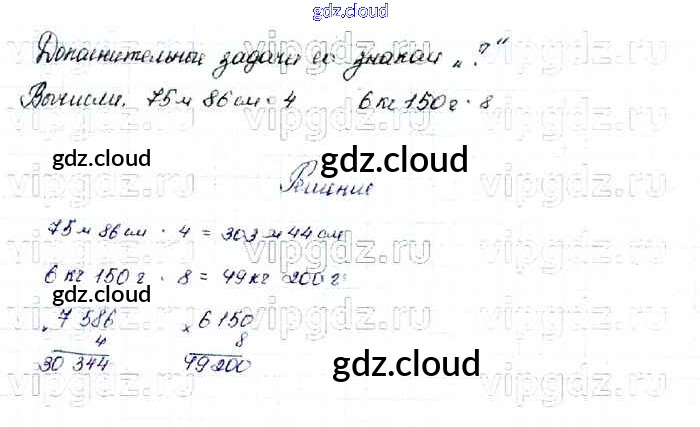 gdz.cloud
Дополнительные задачи со знаком „?“
Вычисли. 75м 86см · 4 6кг 150г · 8
gdz.cloud gdz.cloud
Решение
75м 86см · 4 = 303м 44см
6кг 150г · 8 = 49кг 200г
gdz.cloud
× 7 586 × 6 150
4 8
30 344 49 200
gdz.cloud
vipgdz.ru